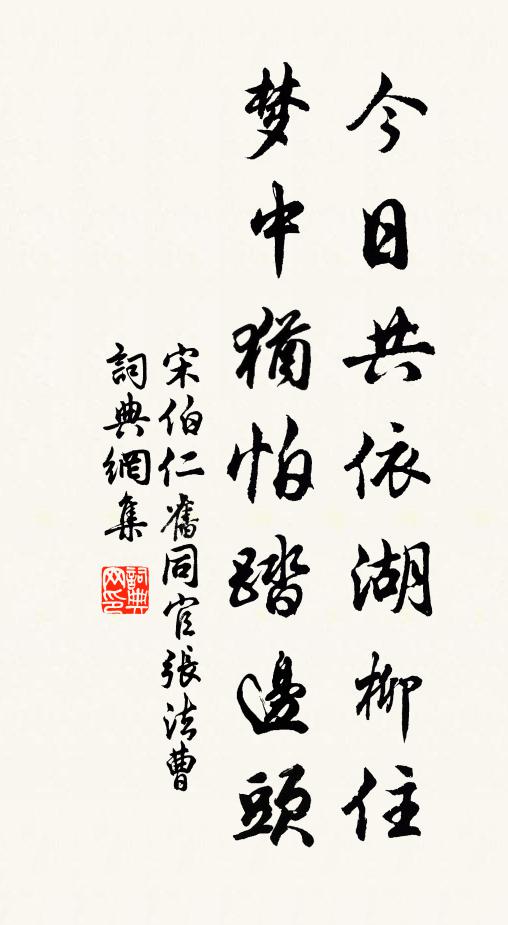 今日共依湖柳住
梦中猶怕踏邊頭
宋伯仁舊同官張法曹
詞典網集
詞典网印